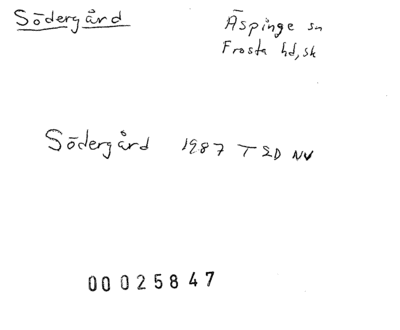 Södergård
Äspinge sn
Frosta hd, sk
Södergård 1987 T 2D NV
00025847